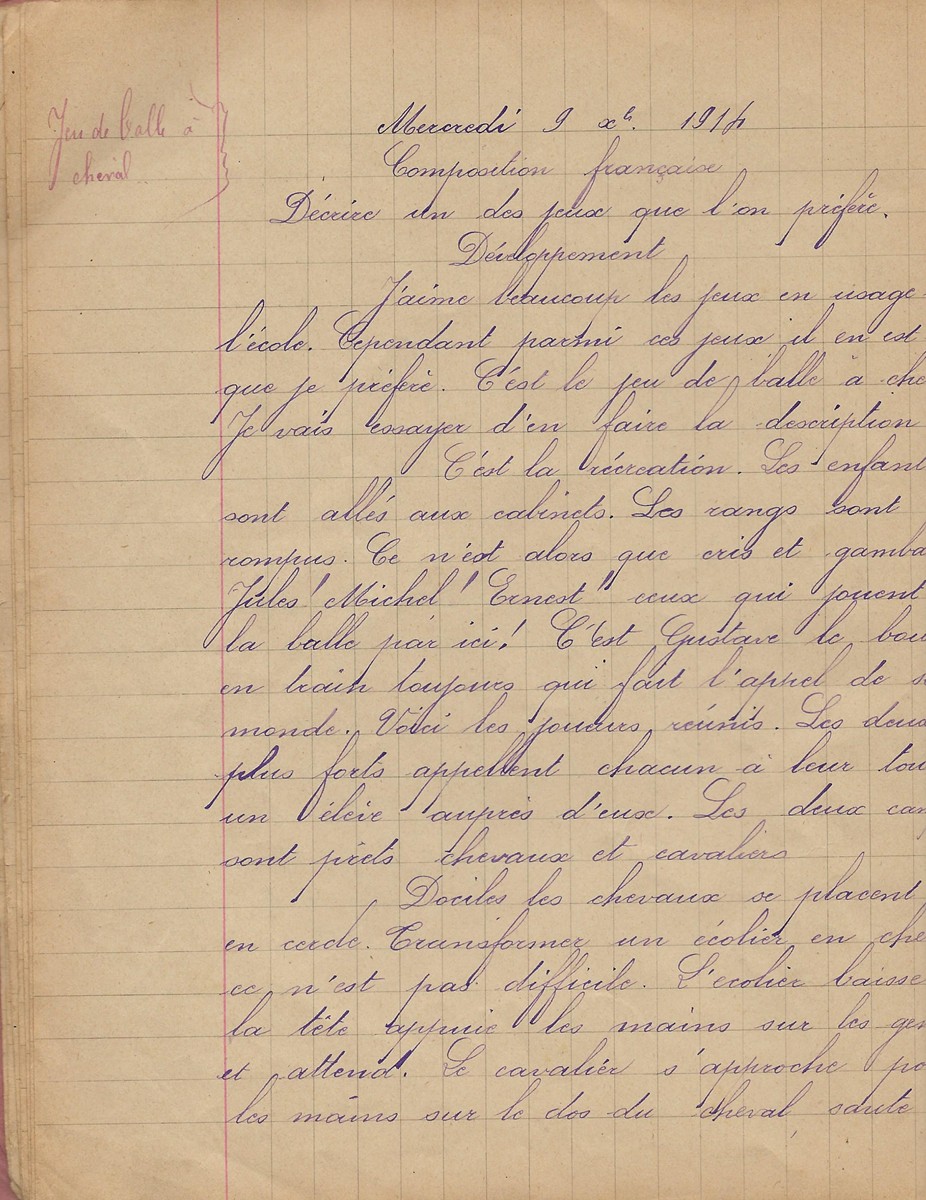 Jeu de balle à
cheval
Mercredi 9 Xbre 1914
Composition française
Décrire un des jeux que l'on préfère.
Développement
J'aime beaucoup les jeux en usage
l'école. Cependant parmi ces jeux il en est
que je préfère. C'est le jeu de balle à che
Je vais essayer d'en faire la description
C'est la récréation. Les enfant
sont allés aux cabinets. Les rangs sont
rompus. Ce n'est alors que cris et gamba
Jules ! Michel ! Ernest ! ceux qui jouent
la balle par ici ! C'est Gustave le bou
en train toujours qui fait l'appel de s
monde. Voici les joueurs réunis. Les deux
plus forts appellent chacun à leur tou
un élève auprès d'eux. Les deux cam
sont prêts chevaux et cavaliers
Dociles les chevaux se placent
en cercle. Transformer un écolier en che
ce n'est pas difficile. L'écolier baisse
la tête appuie les mains sur les gen
et attend. Le cavalier s'approche po
les mains sur le dos du cheval saute